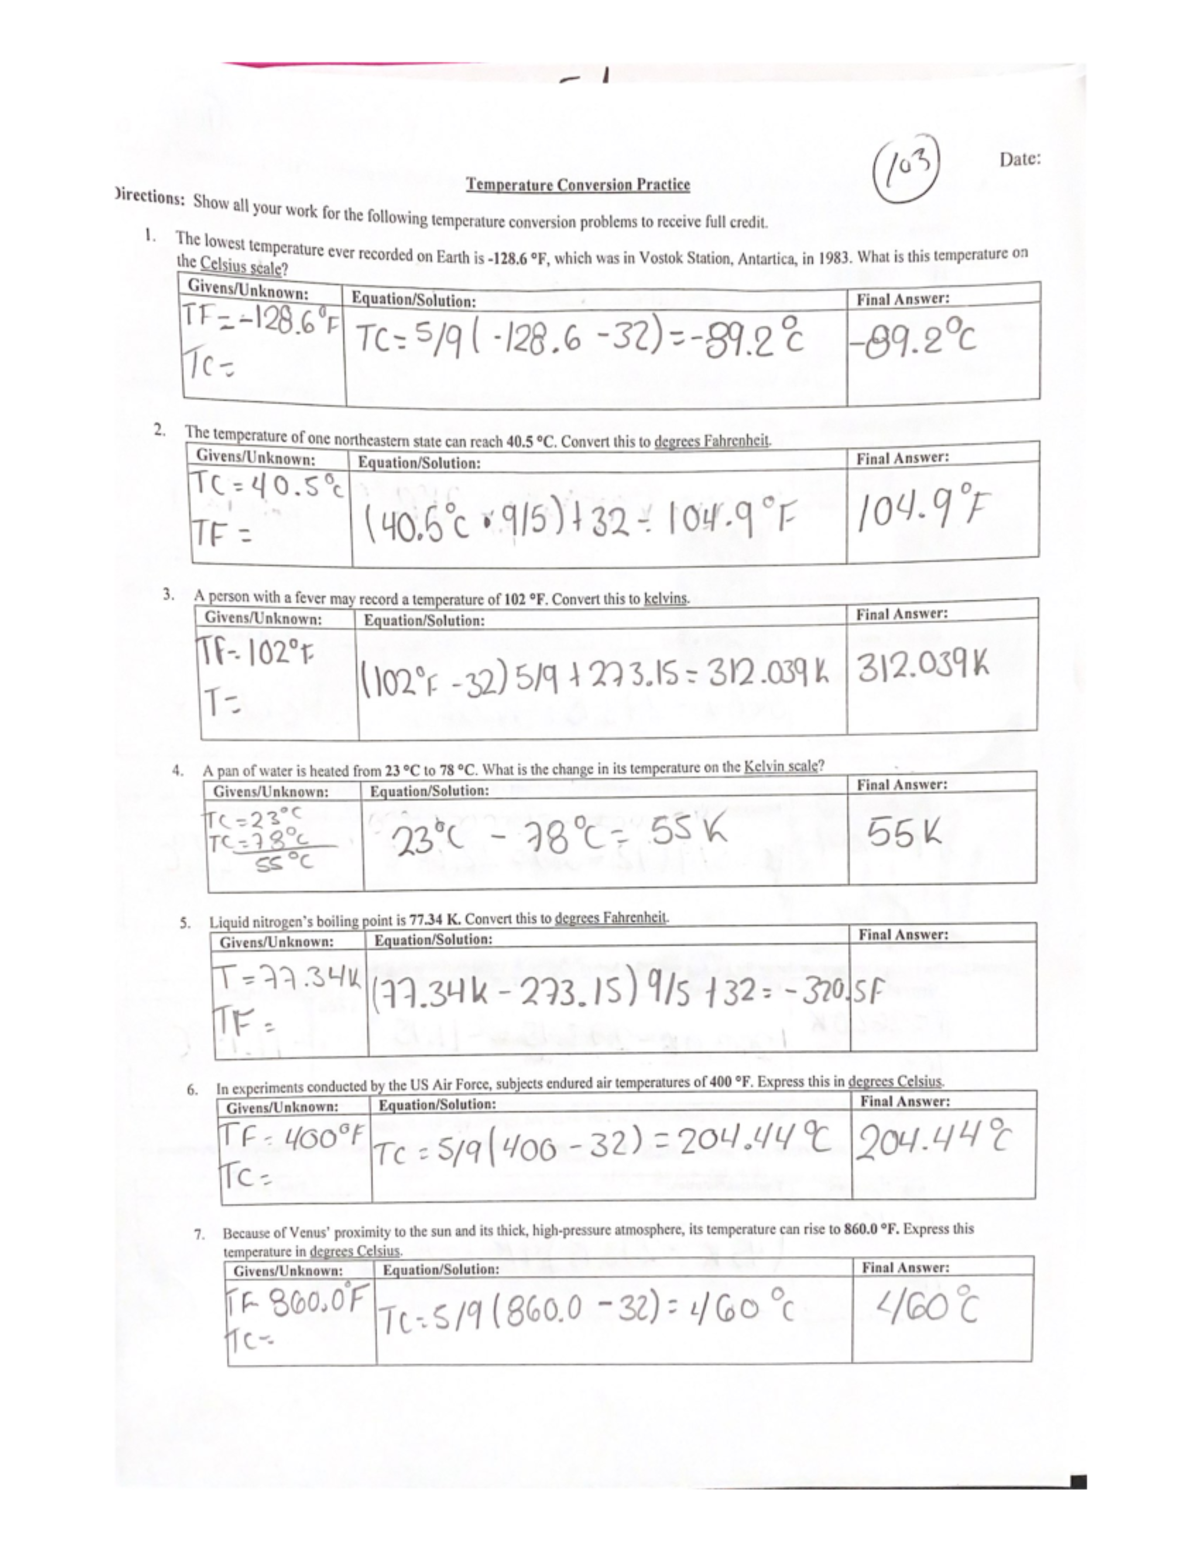 - 1
103
Date:
Temperature Conversion Practice
Directions: Show all your work for the following temperature conversion problems to receive full credit.
1. The lowest temperature ever recorded on Earth is -128.6 ºF, which was in Vostok Station, Antartica, in 1983. What is this temperature on
the Celsius scale?
Givens/Unknown: Equation/Solution: Final Answer:
TF=-128.6°F TC=5/9(-128.6-32)=-89.2°C -89.2°C
TC=
2. The temperature of one northeastern state can reach 40.5 ºC. Convert this to degrees Fahrenheit.
Givens/Unknown: Equation/Solution: Final Answer:
TC=40.5°C (40.5°C•9/5)+32=104.9°F 104.9°F
TF=
3. A person with a fever may record a temperature of 102 ºF. Convert this to kelvins.
Givens/Unknown: Equation/Solution: Final Answer:
TF=102°F (102°F-32)5/9+273.15=312.039K 312.039K
T=
4. A pan of water is heated from 23 ºC to 78 ºC. What is the change in its temperature on the Kelvin scale?
Givens/Unknown: Equation/Solution: Final Answer:
TC=23°C 23°C - 78°C= 55K 55K
TC=78°C
55°C
5. Liquid nitrogen's boiling point is 77.34 K. Convert this to degrees Fahrenheit.
Givens/Unknown: Equation/Solution: Final Answer:
T=77.34K (77.34K-273.15)9/5+32=-320.5F
TF=
6. In experiments conducted by the US Air Force, subjects endured air temperatures of 400 ºF. Express this in degrees Celsius.
Givens/Unknown: Equation/Solution: Final Answer:
TF=400°F TC=5/9(400-32)=204.44°C 204.44°C
TC=
7. Because of Venus' proximity to the sun and its thick, high-pressure atmosphere, its temperature can rise to 860.0 ºF. Express this
temperature in degrees Celsius.
Givens/Unknown: Equation/Solution: Final Answer:
TF 860.0°F TC=5/9(860.0-32)=460°C 460°C
TC=